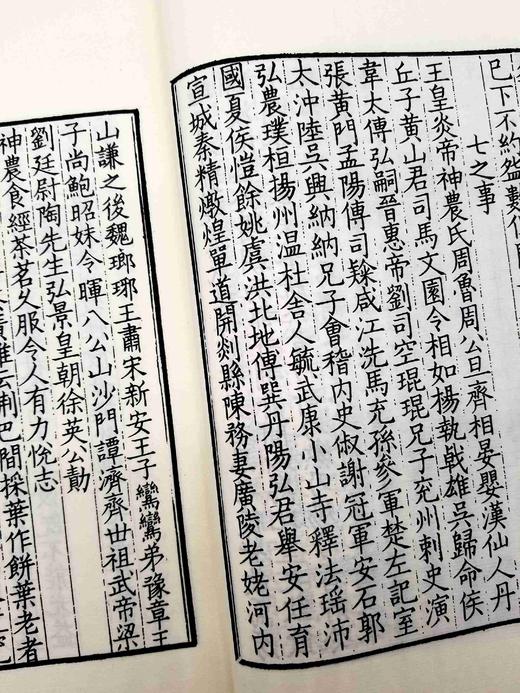 巳下不約盌數
七之事
王皇炎帝神農氏周魯周公旦齊相晏嬰漢仙人丹
丘子黃山君司馬文園令相如楊執戟雄吳歸命侯
韋太傅弘嗣晉惠帝劉司空琨琨兄子兖州刺史演
張黃門孟陽傅司隸咸江洗馬充孫參軍楚左記室
太沖陸吳興納納兄子會稽內史俶謝冠軍安石郭
弘農璞桓揚州温杜舍人毓武康小山寺釋法瑶沛
國夏侯愷餘姚虞洪北地傅巽丹陽弘君舉安任育
宣城秦精燉煌單道開剡縣陳務妻廣陵老姥河內
山謙之後魏瑯琊王肅宋新安王子鸞鸞弟豫章王
子尚鮑昭妹令暉八公山沙門譚濟齊世祖武帝梁
劉廷尉陶先生弘景皇朝徐英公勣
神農食經茶茗久服令人有力悅志
雅云荊巴間採葉作餅葉老者